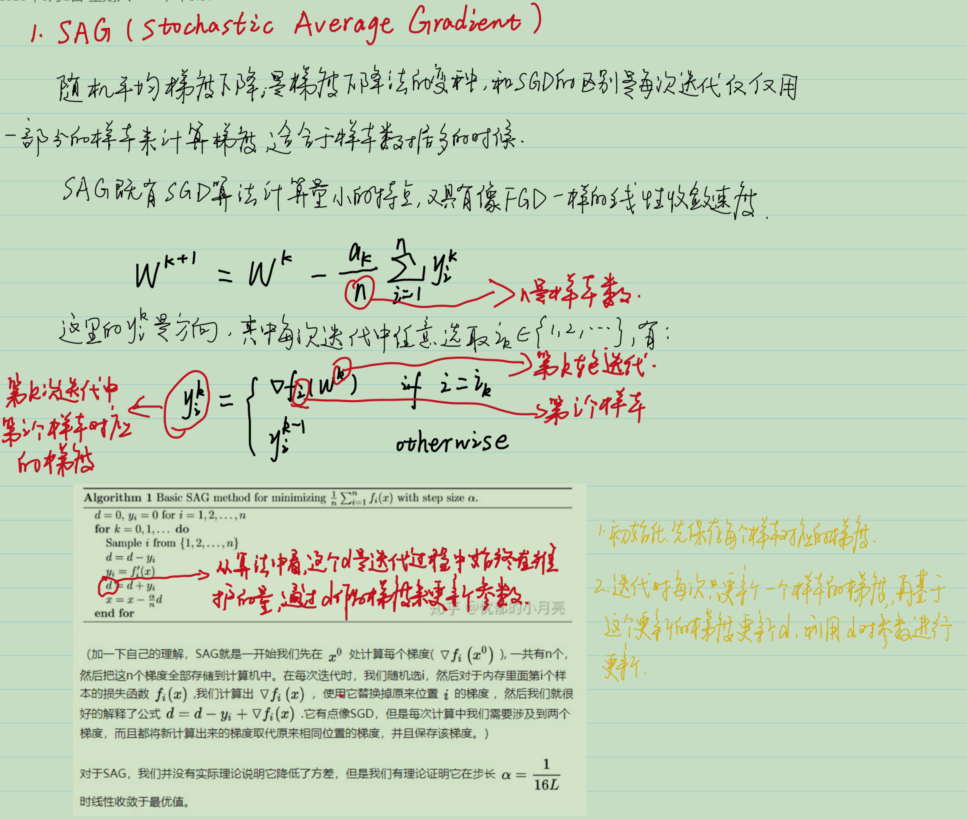 1. SAG (Stochastic Average Gradient)
随机平均梯度下降,是梯度下降法的变种,和SGD的区别是每次迭代仅仅用
一部分的样本来计算梯度,适合于样本数据多的时候.
SAG既有SGD算法计算量小的特点,又具有像FGD一样的线性收敛速度.
W^{k+1} = W^k - \frac{a_k}{n} \sum_{i=1}^{n} y_i^k
n是样本数.
这里的y_i^k是方向,其中每次迭代中任意选取i_k∈{1,2,…},有:
第k轮迭代.
第k次迭代中
第i个样本对应
的梯度
y_i^k = { ∇f_i(W^k) if i=i_k
第i个样本
y_i^{k-1} otherwise
Algorithm 1 Basic SAG method for minimizing \frac{1}{n} \sum_{i=1}^{n} f_i(x) with step size α.
d = 0, y_i = 0 for i = 1, 2, . . . , n
for k = 0, 1, . . . do
Sample i from {1, 2, . . . , n}
d = d − y_i
y_i = f_i'(x)
d = d + y_i
x = x − \frac{α}{n} d
end for
从算法中看,这个d是迭代过程中始终在维
护的量,通过d的梯度来更新参数.
知乎 @忧郁的小月亮
1.初始化:先保存每个样本对应的梯度.
2.迭代时每次只更新一个样本的梯度,再基于
这个更新的梯度更新d,利用d对参数进行
更新.
(加一下自己的理解,SAG就是一开始我们先在 x^0 处计算每个梯度( ∇f_i (x^0) ),一共有n个,
然后把这n个梯度全部存储到计算机中。在每次迭代时,我们随机选i,然后对于内存里面第i个样
本的损失函数 f_i(x) ,我们计算出 ∇f_i (x) ,使用它替换掉原来位置 i 的梯度,然后我们就很
好的解释了公式 d = d − y_i + ∇f_i(x) .它有点像SGD,但是每次计算中我们需要涉及到两个
梯度,而且都将新计算出来的梯度取代原来相同位置的梯度,并且保存该梯度。)
对于SAG,我们并没有实际理论说明它降低了方差,但是我们有理论证明它在步长 α = \frac{1}{16L}
时线性收敛于最优值。